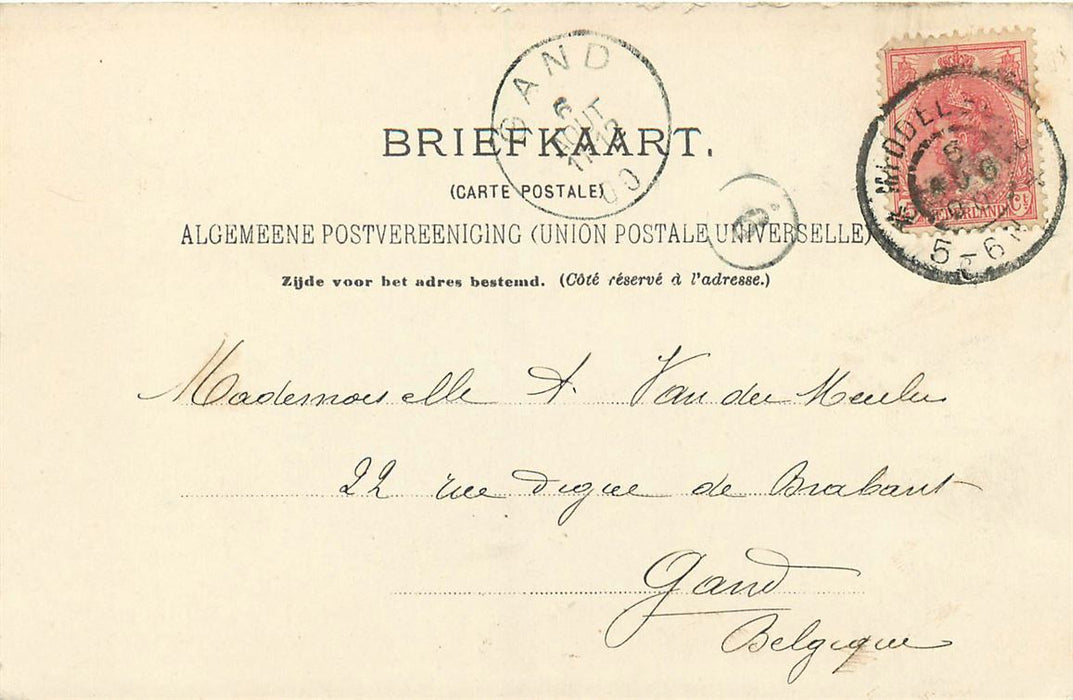 GAND
6
AOUT
00
BRIEFKAART.
(CARTE POSTALE)
ALGEMEENE POSTVEREENIGING (UNION POSTALE UNIVERSELLE)
Zijde voor het adres bestemd. (Côté réservé à l'adresse.)
NEDERLAND
Ct
5
AUG
Mademoiselle A. Van der Meulen
22 rue Digue de Brabant
Gand
Belgique